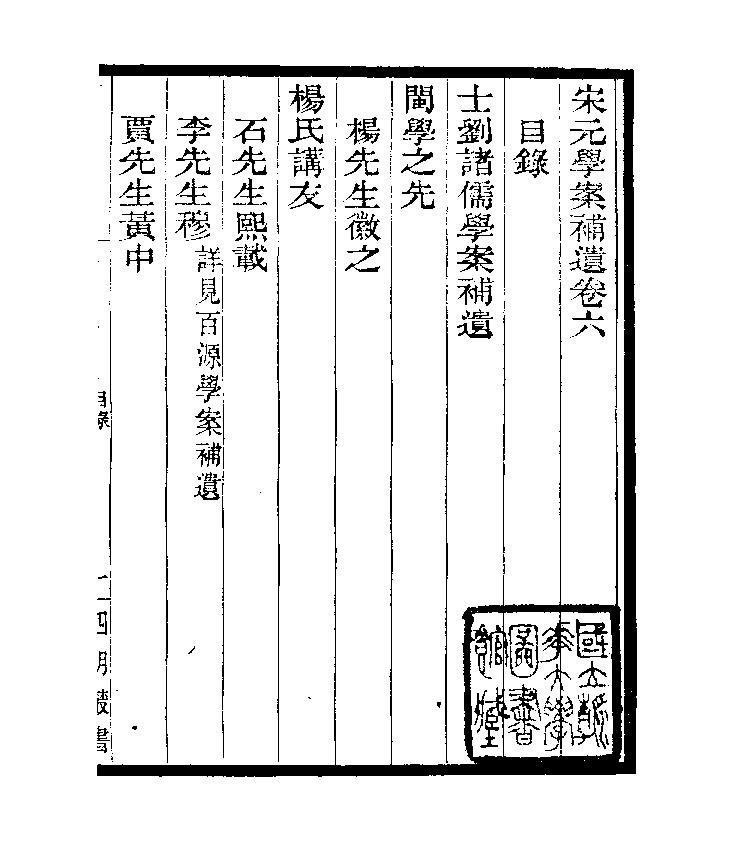 宋元學案補遺卷六
目錄
士劉諸儒學案補遺
閩學之先
楊先生徽之
楊氏講友
石先生熙載
李先生穆 詳見百源學案補遺
賈先生黃中
目錄
四明叢書
國立
大學
圖書
館